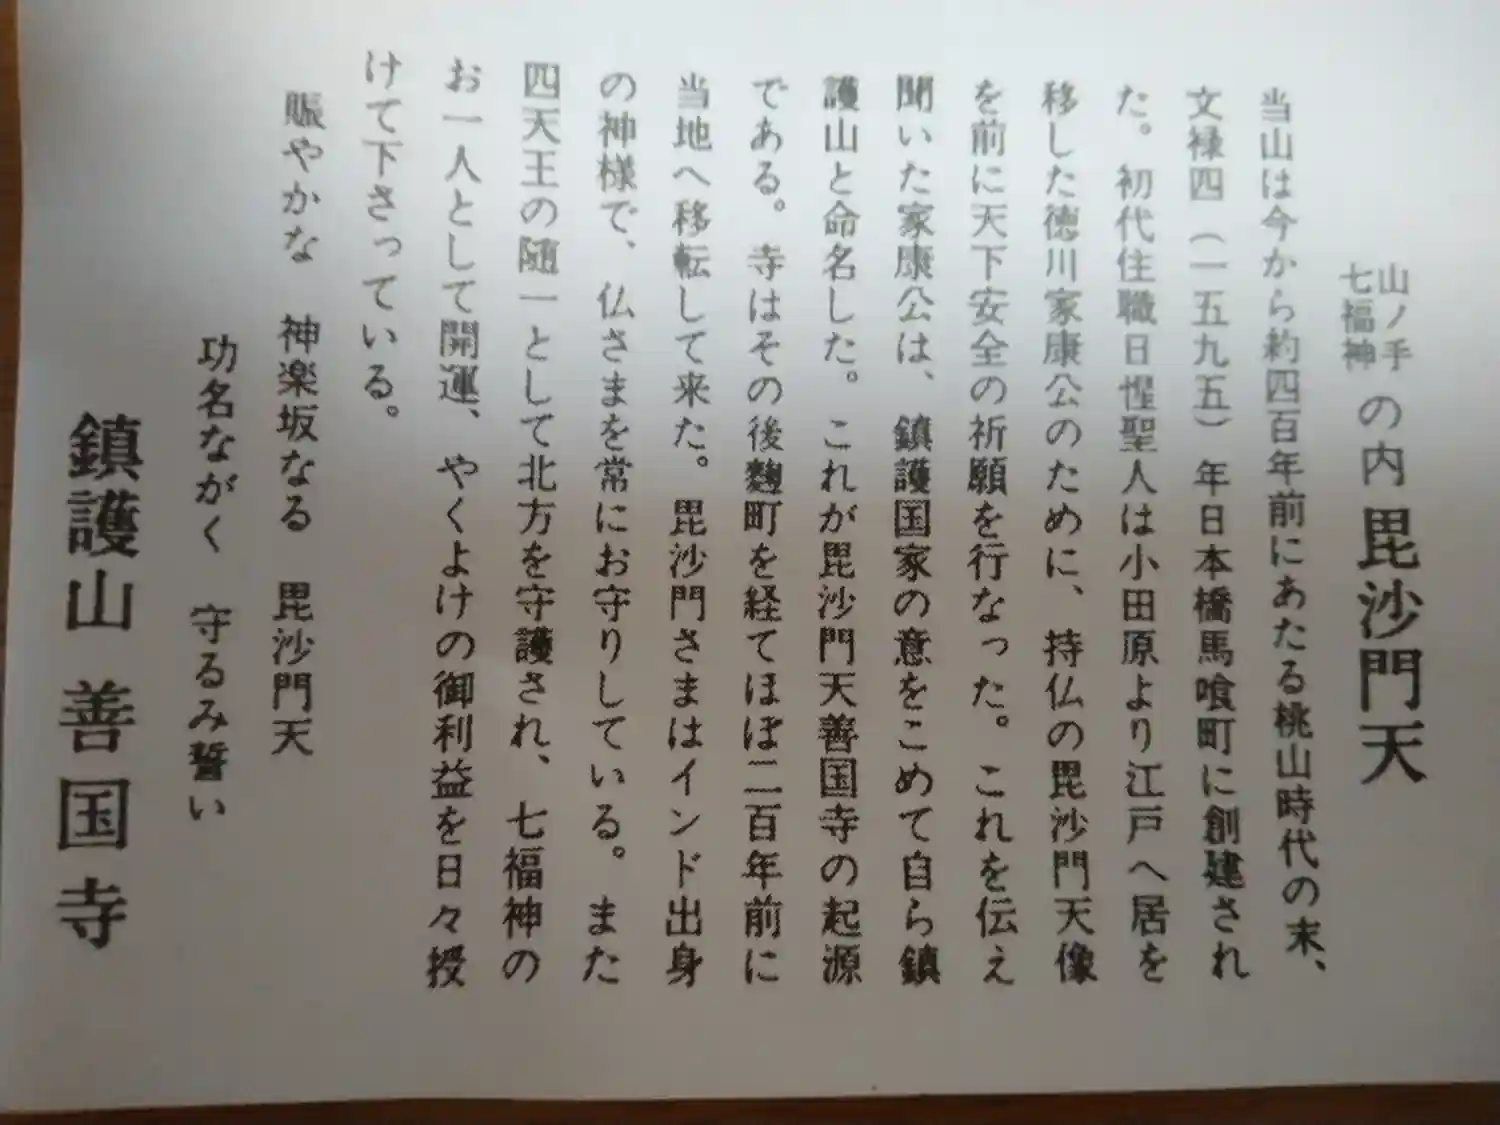 山ノ手
七福神 の内 毘沙門天
当山は今から約四百年前にあたる桃山時代の末、
文禄四（一五九五）年日本橋馬喰町に創建され
た。初代住職日惺聖人は小田原より江戸へ居を
移した徳川家康公のために、持仏の毘沙門天像
を前に天下安全の祈願を行なった。これを伝え
聞いた家康公は、鎮護国家の意をこめて自ら鎮
護山と命名した。これが毘沙門天善国寺の起源
である。寺はその後麹町を経てほぼ二百年前に
当地へ移転して来た。毘沙門さまはインド出身
の神様で、仏さまを常にお守りしている。また
四天王の随一として北方を守護され、七福神の
お一人として開運、やくよけの御利益を日々授
けて下さっている。
賑やかな 神楽坂なる 毘沙門天
功名ながく 守るみ誓い
鎮護山 善国寺